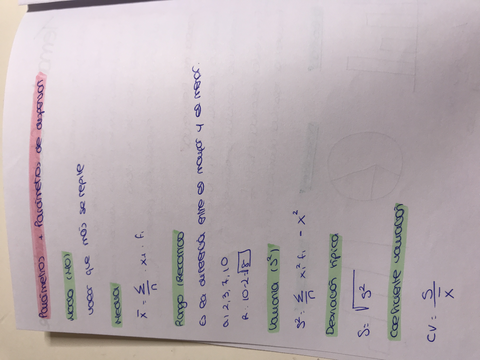 Parámetros + Parámetros de dispersión
Moda (Mo)
valor que más se repite
Media
x̄ = Σ/n xi · fi
Rango / Recorrido
Es la diferencia entre el mayor y el menor.
a: 2, 3, 7, 10
R: 10-2=8
Varianza (S²)
S² = Σ/n xi² fi - x̄²
Desviación típica
S = √S²
Coeficiente variación
CV = S/x̄